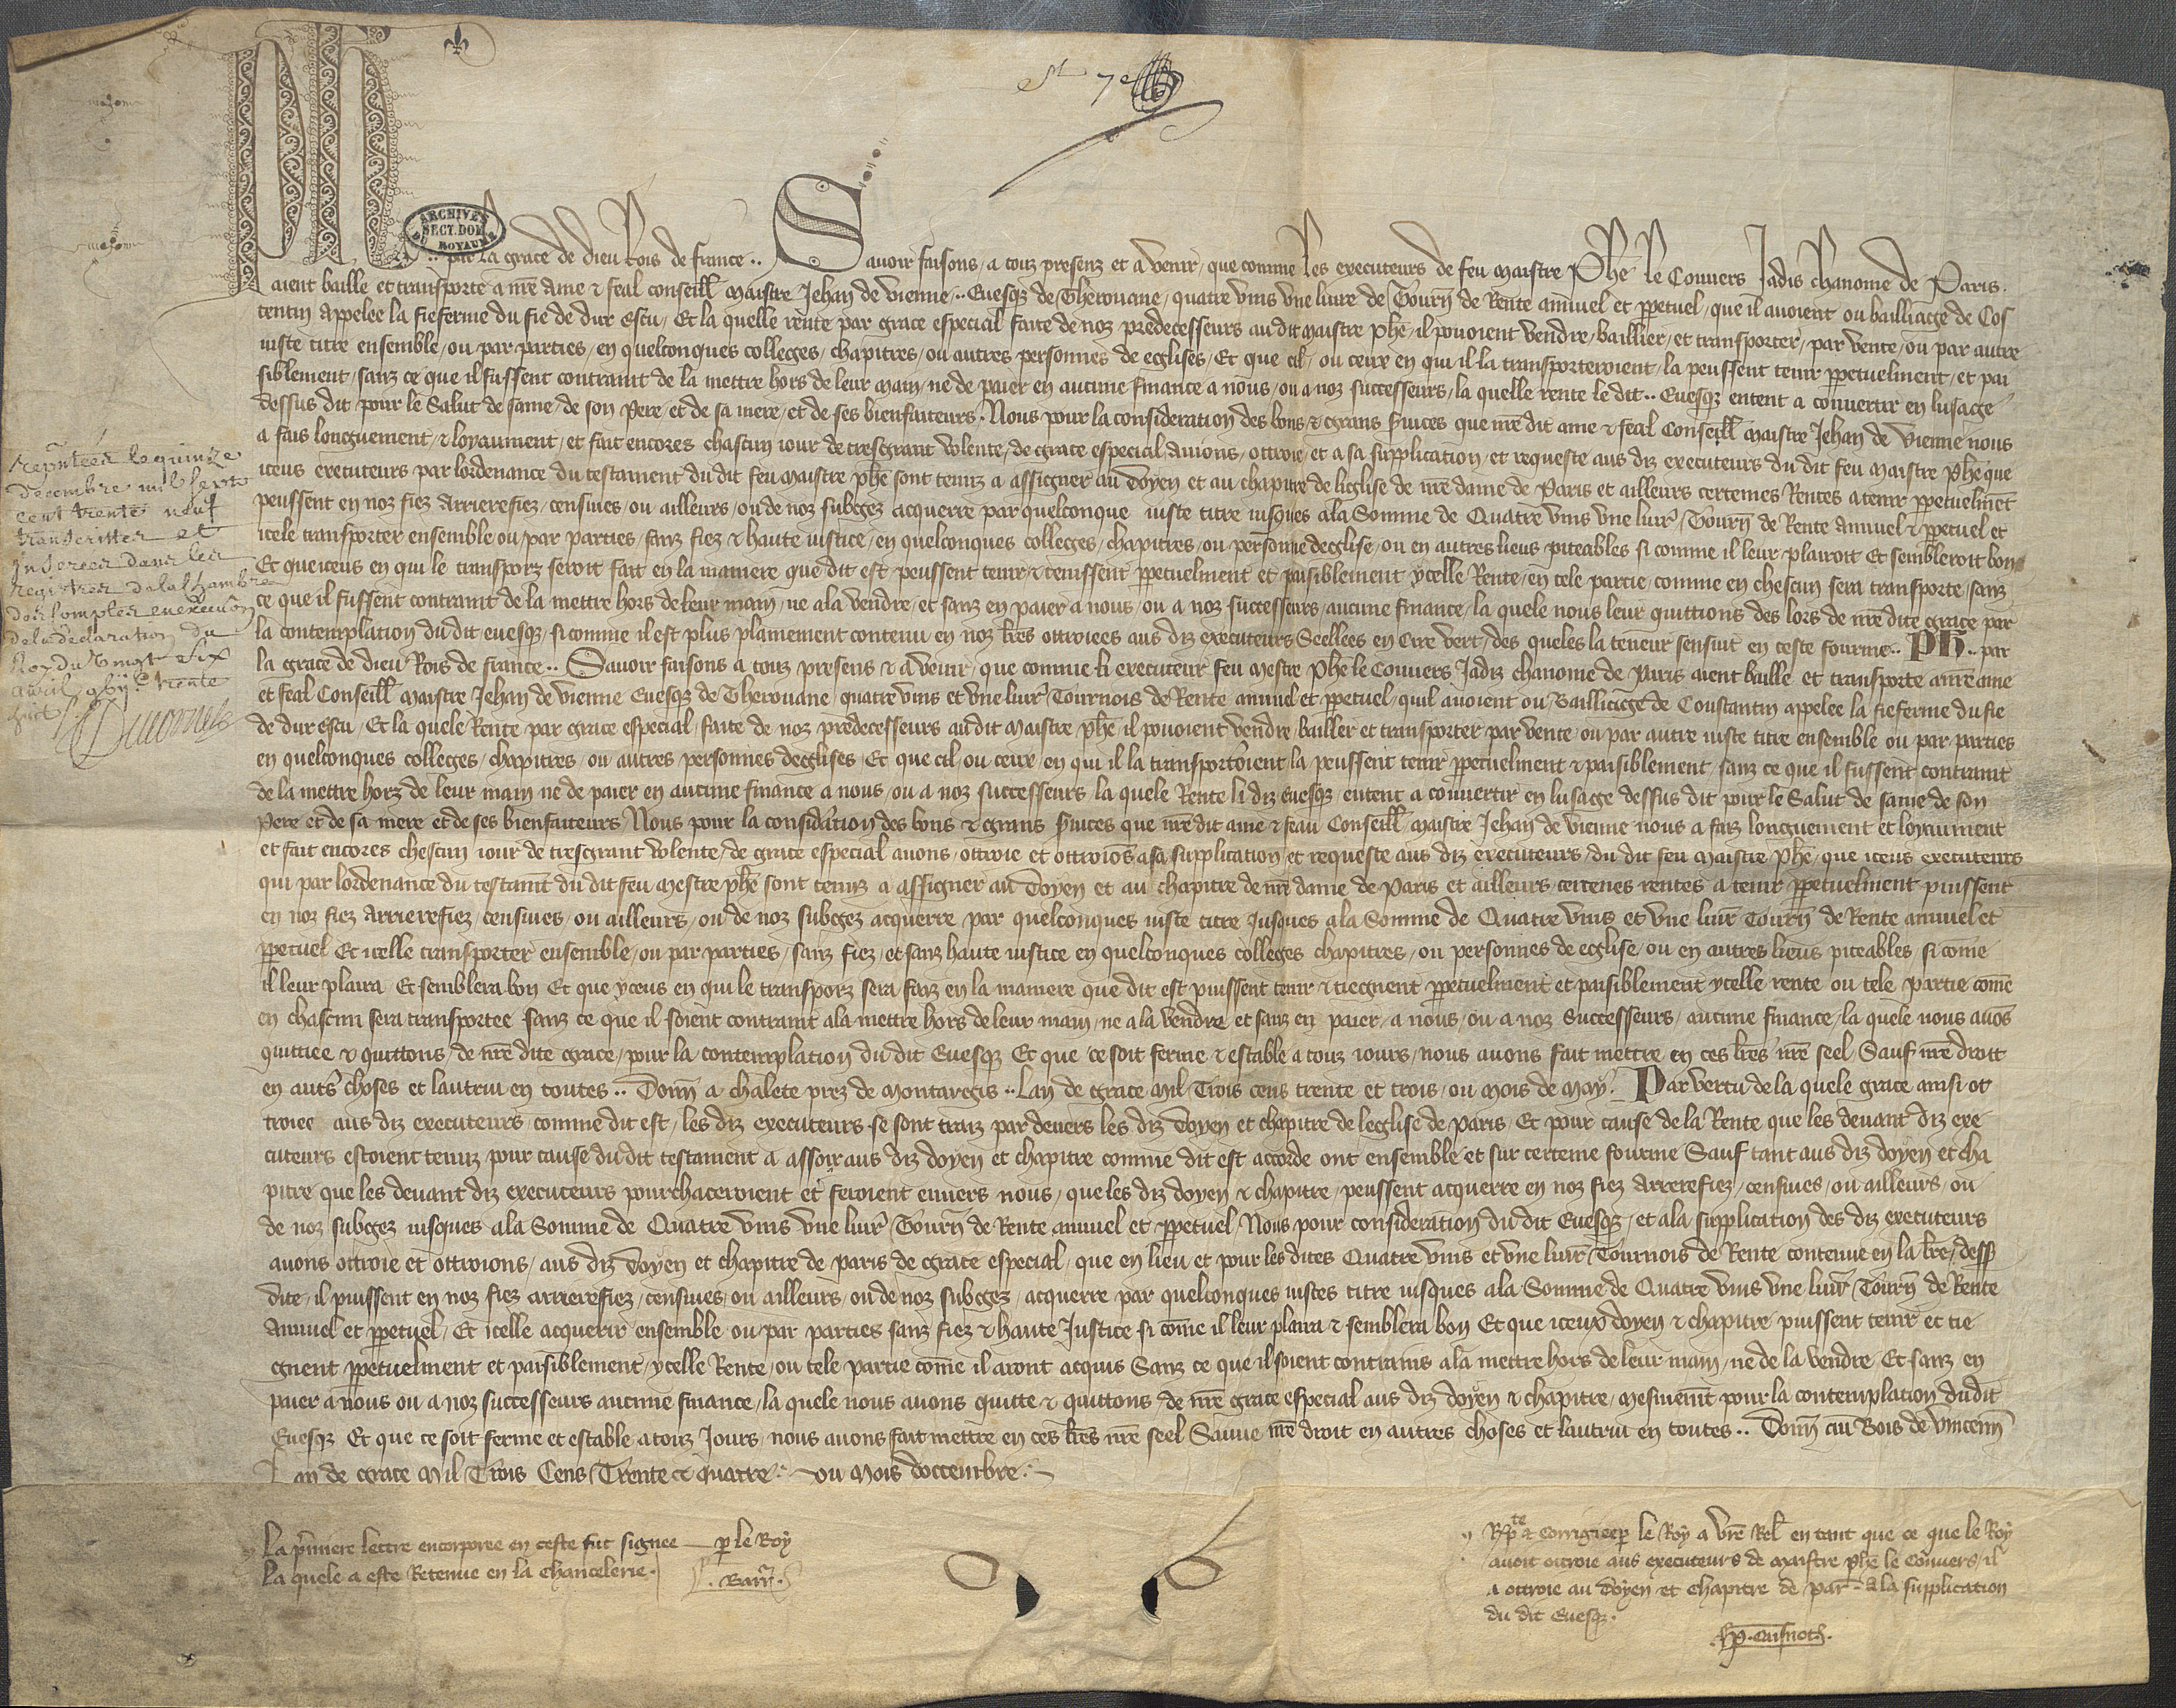 Ph
ARCHIVES
SECT. DOM.
DU ROYAUME
.. par la grace de dieu Rois de france .. Savoir faisons / a touz presenz et a venir / que comme les executeurs de feu maistre Phē le Convers Jadis chanoine de Paris .
aient baille et transporte a nr̄e ame & feal conseill̄ maistre Jehan de vienne .. Evesq̄ de Therouane / quatre vins une livre de Tourn̄ de Rente annuel et pp̄etuel / que il avoient ou bailliage de Cos
tentin appelee la fieferme du fie de dur escu / Et la quelle rente par grace especial faite de noz predecesseurs au dit maistre phē / il povoient vendre / baillier / et transporter / par vente / ou par autre
iuste titre ensemble / ou par parties / en quelconques colleges / chapitres / ou autres personnes de eglises / Et que cil / ou ceux en qui il la transporteroient / la peussent tenir pp̄etuelment / et pai
siblement / sanz ce que il fussent contraint de la mettre hors de leur main / ne de paier en aucune finance a nous / ou a noz successeurs / la quelle rente le dit .. Evesq̄ entent a convertir en lusage
dessus dit pour le Salut de same / de son Pere / et de sa mere / et de ses bienfaiteurs . Nous pour la consideration des bons & grans s̄vices que nr̄e dit ame & feal Conseill̄ maistre Jehan de vienne nous
a fais longuement / & loyaument / et fait encores chascun iour de tresgrant volente / de grace especial avions / ottroie / et a sa supplication / et requeste aus diz executeurs du dit feu maistre phē que
iceus executeurs par lordenance du testament du dit feu maistre phē sont tenuz a assigner au Doyen et au chapitre de leglise de nr̄e dame de Paris et ailleurs certeines Rentes a tenir pp̄etuelmēt
peussent en noz fiez arrierefiez / censives / ou ailleurs / ou de noz subgez acquerre par quelconque iuste titre iusques a la Somme de Quatre vins une livr̄ / Tourn̄ de Rente annuel & pp̄etuel et
icele transporter ensemble ou par parties / sanz fiez & haute iustice / en quelconques colleges / chapitres / ou personne deglise / ou en autres lieus piteables si comme il leur plairoit Et sembleroit bon
Et que iceus en qui le transporz seroit fait en la maniere que dit est peussent tenir & tenissent pp̄etuelment et paisiblement ycelle Rente / en tele partie / comme en chescun sera transporte / sanz
ce que il fussent contraint de la mettre hors de leur main / ne a la vendre / et sanz en paier a nous / ou a noz successeurs / aucune finance / la quele nous leur quittions des lors de nr̄e dite grace par
la contemplation du dit evesq̄ / si comme il est plus plainement contenu en noz lr̄es ottroiees aus diz executeurs Seellees en cire vert / des queles la teneur sensuit en ceste fourme .. Ph .. par
la grace de dieu Rois de france .. Savoir faisons a touz presens & a venir / que comme li executeur feu mestre Phē le Convers Jadiz chanoine de Paris aient baille et transporte a nr̄e ame
et feal Conseill̄ maistre Jehan de vienne Evesque de Therouane quatre vins et une livr̄ Tournois de Rente annuel et pp̄etuel / quil avoient ou Bailliage de Constantin appelee la fieferme du fie
de dur escu / Et la quele Rente par grace especial / faite de noz predecesseurs au dit maistre / phē / il povoient vendre / bailler et transporter par vente / ou par autre iuste titre ensemble ou par parties
en quelconques colleges / chapitres / ou autres personnes deglises / Et que cil / ou ceux / en qui il la transportoient la peussent tenir pp̄etuelment & paisiblement / sanz ce que il fussent contraint
de la mettre horz de leur main ne de paier en aucune finance a nous / ou a noz successeurs la quele Rente li diz Evesq̄ entent a convertir en lusage dessus dit pour le Salut de same de son
Pere et de sa mere et de ses bienfaiteurs / Nous pour la considācion des bons & grans s̄vices que nr̄e dit ame & feau Conseill̄ maistre Jehan de vienne nous a faiz longuement et loyaument
et fait encores chescun iour de tresgrant volente / de grace especial avons / ottroie et ottroiōs a sa supplication et requeste aus diz executeurs / du dit feu maistre phē / que iceus executeurs
qui par lordenance du testamt̄ du dit feu mestre phē sont tenuz a assigner au Doyen et au chapitre de nr̄e dame de Paris et ailleurs certenes rentes a tenir pp̄etuelment puissent
en noz fiez arrierefiez / censives / ou ailleurs / ou de noz subgez acquerre par quelconques iuste titre Jusques a la Somme de Quatre vins et une livr̄ Tourn̄ de Rente annuel et
pp̄etuel Et icelle transporter ensemble / ou par parties / sanz fiez / et sanz haute iustice en quelconques colleges chapitres / ou personnes de eglise / ou en autres lieus piteables si come
il leur plaira Et semblera bon Et que yceus en qui le transporz sera faiz en la maniere que dit est puissent tenir & tiegnent pp̄etuelment et paisiblement ycelle rente ou tele partie com̄e
en chascun sera transportee sanz ce que il soient contraint a la mettre hors de leur main / ne a la vendre et sanz en paier / a nous / ou a noz Successeurs / aucune finance / la quele nous avōs
quittiee & quittons / de nr̄e dite grace / pour la contemplation du dit Evesq̄ Et que ce soit ferme & estable a touz iours / nous avons fait mettre en ces lr̄es nr̄e seel Sauf nr̄e droit
en autr̄s choses et lautrui en toutes .. Donn̄ a chalete prez de montargis .. Lan de grace mil Trois cens trente et trois / ou mois de may . Par vertu de la quele grace ainsi ot
troiee aus diz executeurs / comme dit est / les diz executeurs se sont traiz par devers les diz Doyen et chapitre de leglise de Paris / Et pour cause de la Rente que les devant diz exe
cuteurs estoient tenuz pour cause du dit testament a assoir aus diz doyen et chapitre comme dit est accorde ont ensemble et sur certeine fourme Sauf tant aus diz doyen et cha
pitre que les devant diz executeurs pourchaceroient et feroient envers nous / que les diz doyen & chapitre / peussent acquerre en noz fiez arrerefiez / censives / ou ailleurs / ou
de noz subgez iusques a la Somme de Quatre vins une livr̄ Tourn̄ de Rente annuel et pp̄etuel / Nous pour consideration du dit Evesq̄ / et a la supplication des diz executeurs
avons ottroie et ottroions / aus diz Doyen et chapitre de Paris de grace especial / que en lieu et pour les dites Quatre vins et une livr̄ Tournois de Rente contenue en la lr̄e / dess̄
dite / il puissent en noz fiez arrierefiez / censives / ou ailleurs / ou de noz subgez / acquerre par quelconques iustes titre iusques a la Somme de Quatre vins une livr̄ / Tourn̄ de Rente
Annuel et pp̄etuel / Et icelle acquerir ensemble ou par parties sanz fiez & haute Justice si com̄e il leur plaira & semblera bon Et que iceux doyen & chapitre puissent tenir et tie
gnent pp̄etuelment et paisiblement / ycelle Rente / ou tele partie com̄e il aront acquis Sanz ce que il soient contrains a la mettre hors de leur main / ne de la vendre Et sanz en
paier a nous ou a noz successeurs aucune finance / la quele nous avons quitte & quittons / de nr̄e grace especial aus diz doyen & chapitre / mesmemt̄ pour la contemplation du dit
Evesq̄ Et que ce soit ferme et estable a touz Jours / nous avons fait mettre en ces lr̄es nr̄e seel Sauve nr̄e droit en autres choses et lautrui en toutes .. Donn̄ au Bois de vincenn̄
Lan de grace Mil Trois Cens Trente & Quatre . ou mois doctembre .
reputées le quinze
decembre mil sept
cent trente neuf
transcrittes et
Inserées dans les
registres de la Chambre
des Comptes en execu͠on
de la declaration du
Roy du vingt six
avril gbijc trente
huit
Ducornet
La p̄miere lettre encorporee en ceste fut signee — p̄ le Roy
La quele a este Retenue en la Chancelerie .
. Barr̄ .
& corrigiee p̄ le Roy a vr̄e Rel̄ en tant que ce que le Roy
avoit ottroie aus executeurs de maistre phē le convers / il
a ottroie au Doyen et Chapitre de par̄ . a la supplication
du dit Evesq̄ .